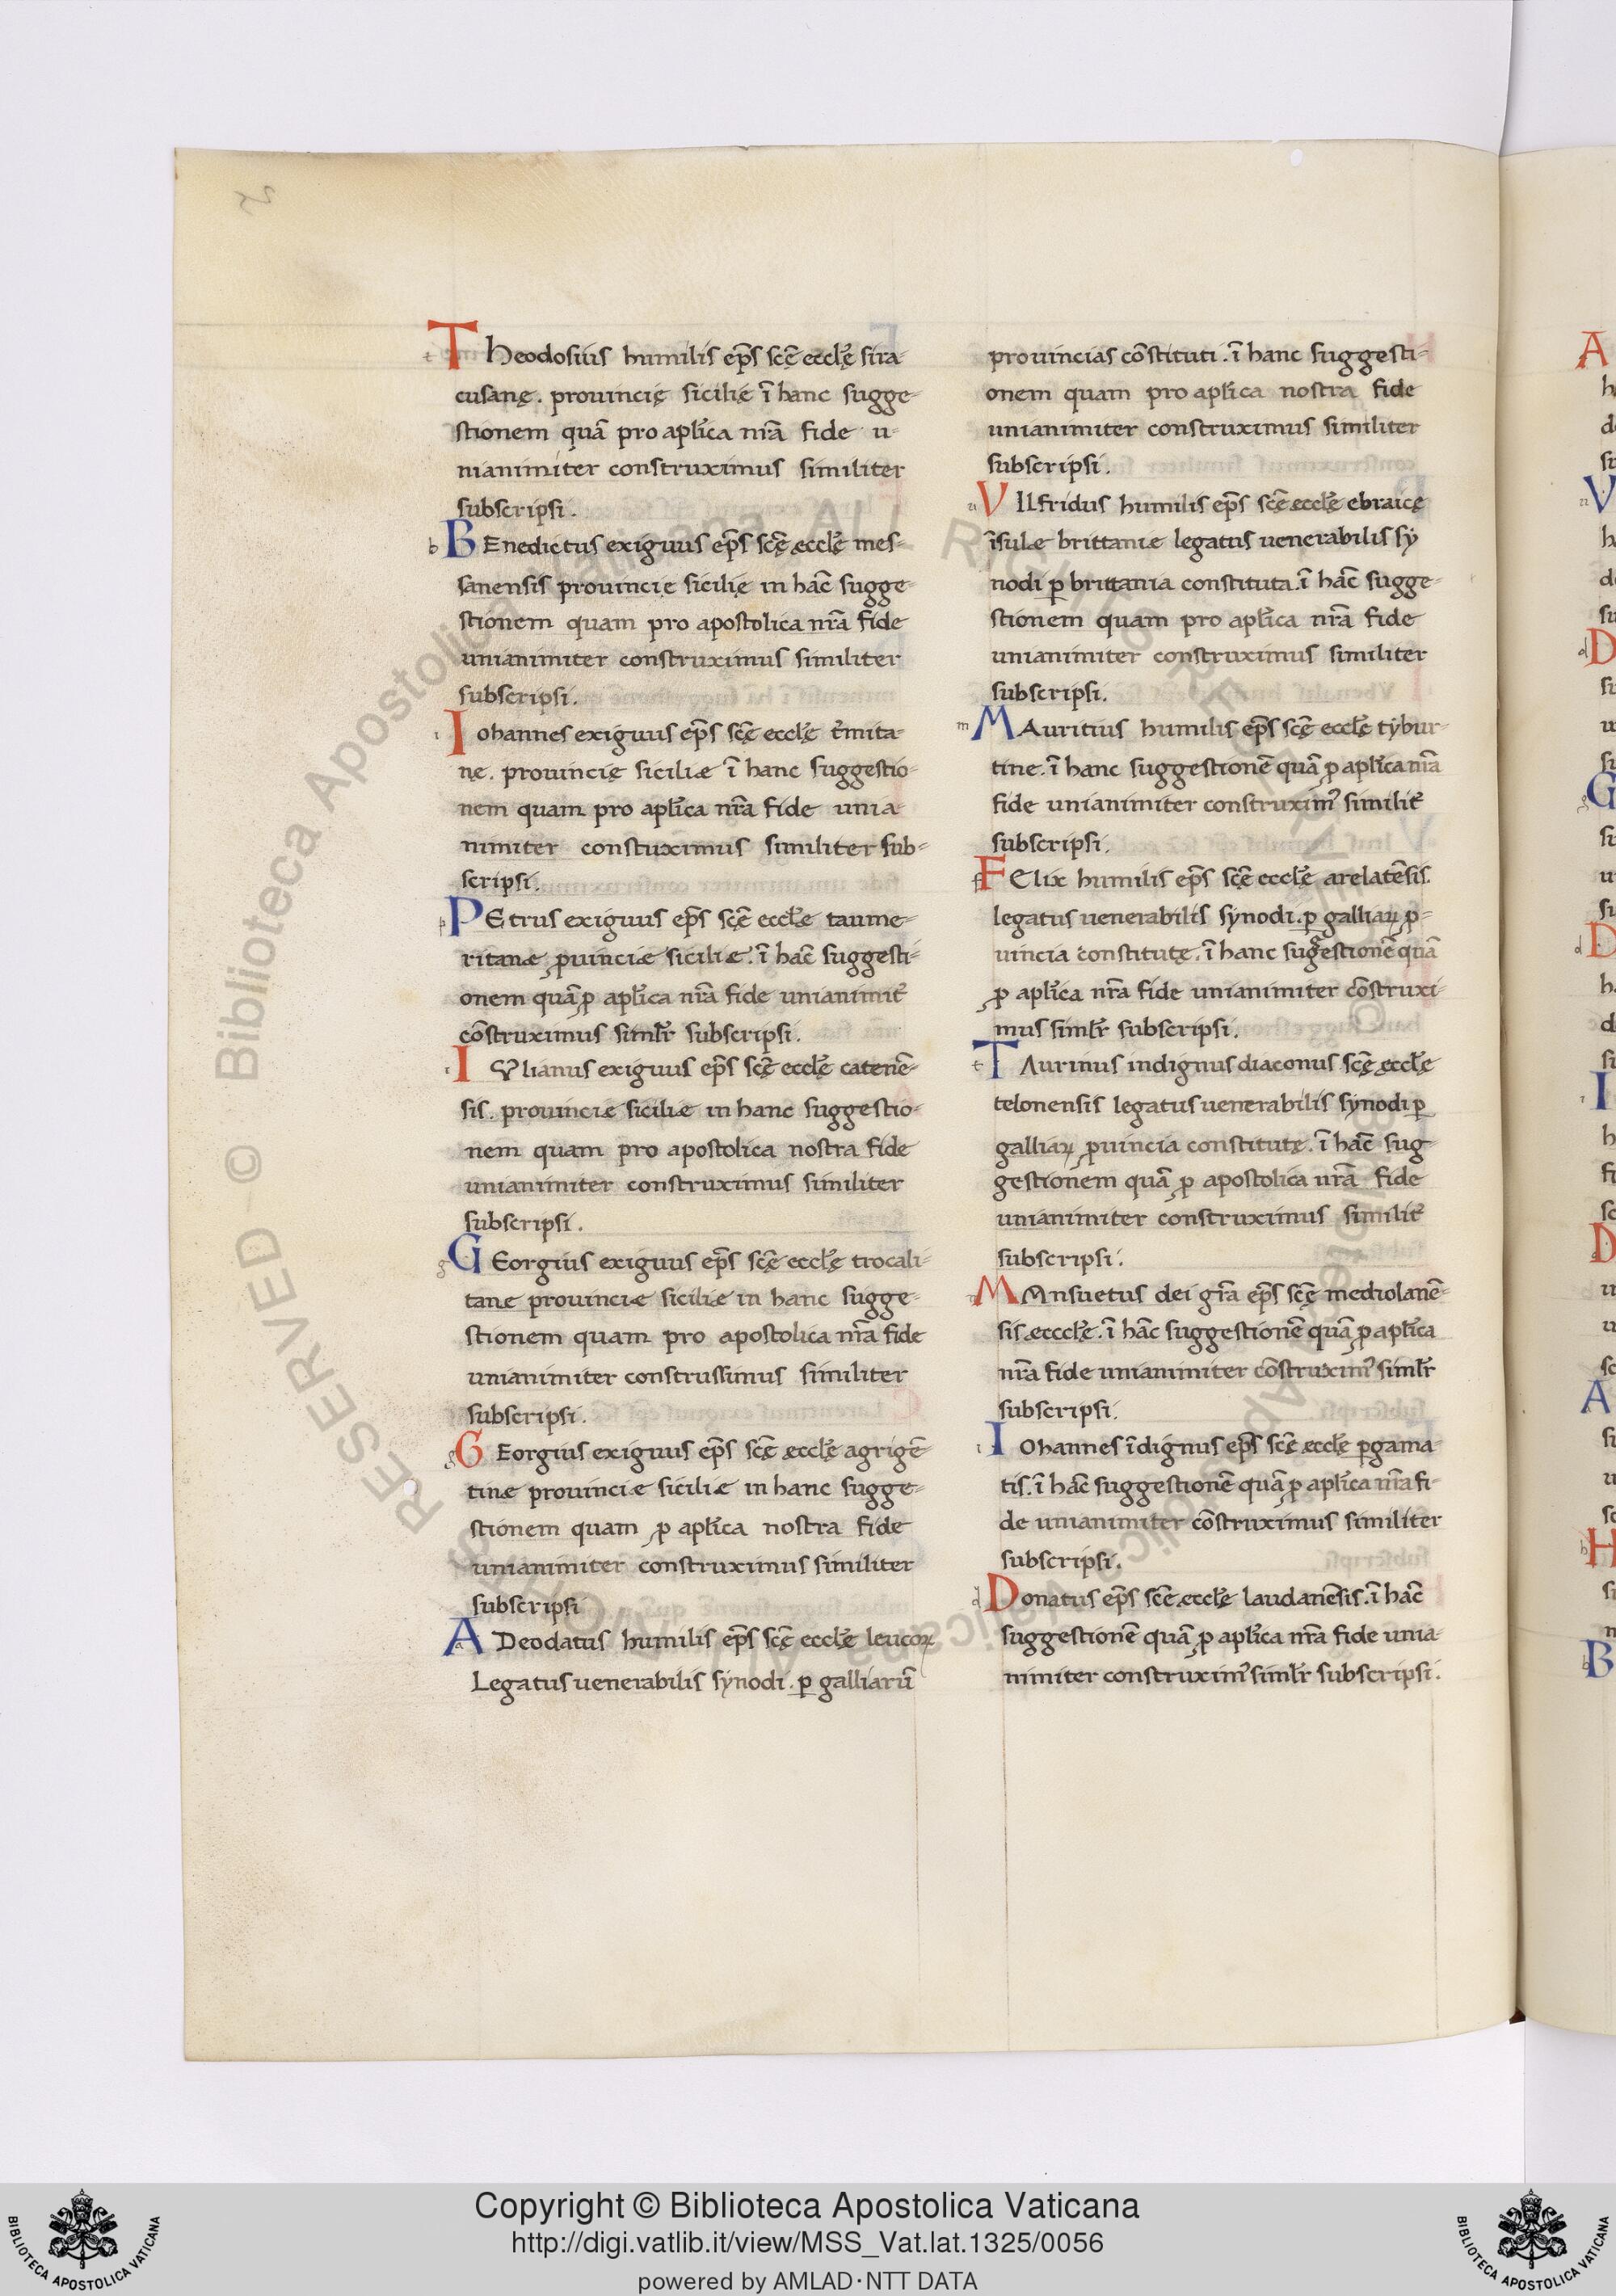 THeodosius humilis ep̄s scę̄ eccl̄ę sira
cusanę. prouincię sicilię ī hanc sugge-
stionem quā pro apl̄ica nr̄a fide u-
nianimiter construximus similiter
subscripsi.
BEnedictus exiguus ep̄s scę̄ æccl̄ę mes-
sanensis prouincię sicilię in hāc sugge-
stionem quam pro apostolica nr̄a fide
unianimiter construximus similiter
subscripsi.
Iohannes exiguus ep̄s scę̄ eccl̄ę t̄mita-
nę. prouincię siciliæ ī hanc suggestio-
nem quam pro apl̄ica nr̄a fide unia
nimiter constuximus similiter sub-
scripsi.
PEtrus exiguus ep̄s scę̄ eccl̄æ taume-
ritanæ ꝓuinciæ siciliæ. ī hāc suggesti-
onem quā ꝓ apl̄ica nr̄a fide unianimit̄
cōstruximus siml̄r subscripsi.
IVlianus exiguus ep̄s scę̄ eccl̄ę catenē-
sis. prouinciæ siciliæ in hanc suggestio-
nem quam pro apostolica nostra fide
unianimiter construximus similiter
subscripsi.
GEorgius exiguus ep̄s scę̄ eccl̄ę trocali-
tanæ prouinciæ siciliæ in hanc sugge-
stionem quam pro apostolica nr̄a fide
unianimiter construssimus similiter
subscripsi.
GEorgius exiguus ep̄s scę̄ æccl̄ę agrigē-
tinæ prouinciæ siciliæ in hanc sugge-
stionem quam ꝓ apl̄ica nostra fide
unianimiter construximus similiter
subscripsi
ADeodatus humilis ep̄s scę̄ eccl̄ę leucoꝝ
Legatus uenerabilis synodi. ꝑ galliarū
prouincias cōstituti. ī hanc suggesti-
onem quam pro apl̄ica nostra fide
unianimiter construximus similiter
subscripsi.
VILfridus humilis ep̄s scę̄ æccl̄ę ebraicę
īsulæ brittaniæ legatus uenerabilis sy
nodi ꝑ brittania constituta. ī hāc sugge-
stionem quam pro apl̄ica nr̄a fide
unianimiter construximus similiter
subscripsi.
MAuritius humilis ep̄s scę̄ eccl̄ę tybur-
tine. ī hanc suggestionē quā ꝓ apl̄ica nr̄a
fide unianimiter construxim᾿ similit̄
subscripsi.
FElix humilis ep̄s scę̄ eccl̄ę arelatēsis.
legatus uenerabilis synodi. ꝑ galliaꝝ ꝓ-
uincia constitutę. ī hanc sugg̅estionē quā
ꝓ apl̄ica nr̄a fide unianimiter cōstruxi-
mus siml̄r subscripsi.
TAurinus indignus diaconus scę̄ æccl̄æ
telonensis legatus uenerabilis synodi ꝑ
galliaꝝ ꝓuincia constitutę. ī hāc sug-
gestionem quā ꝓ apostolica nr̄a fide
unianimiter construximus similit̄
subscripsi.
MAnsuetus dei gr̄a ep̄s scę̄ mediolanē-
sis æcccl̄ę. ī hāc suggestionē quā ꝓ apl̄ica
nr̄a fide unianimiter cōstruxim᾿ siml̄r
subscripsi.
IOhannes īdignus ep̄s scę̄ æccl̄æ ꝑgama-
tis. ī hāc suggestionē quā ꝓ apl̄ica nr̄a fi-
de unianimiter cōstruximus similiter
subscripsi.
Donatus ep̄s scę̄ æccl̄ę laudanēsis. ī hāc
suggestionē quā ꝓ apl̄ica nr̄a fide unia-
nimiter construxim᾿ siml̄r subscripsi.
RESERVED © Biblioteca Apostolica Vaticana ALL RIGHTS RESERVED © Biblioteca Apostolica Vaticana ALL RIGHTS
Copyright © Biblioteca Apostolica Vaticana
http://digi.vatlib.it/view/MSS_Vat.lat.1325/0056
powered by AMLAD·NTT DATA
BIBLIOTECA APOSTOLICA VATICANA
BIBLIOTECA APOSTOLICA VATICANA